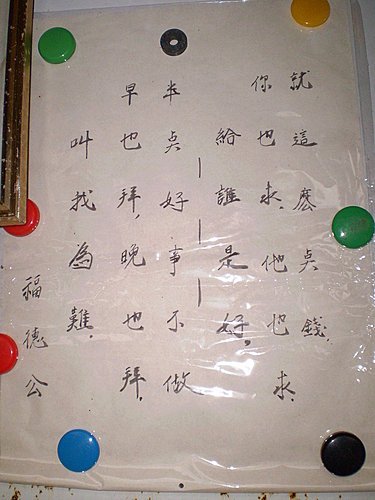 就這麼奌錢,
你也求,他也求.
給誰是好,
半奌好事不做
早也拜,晚也拜,
叫我為難.
福德公